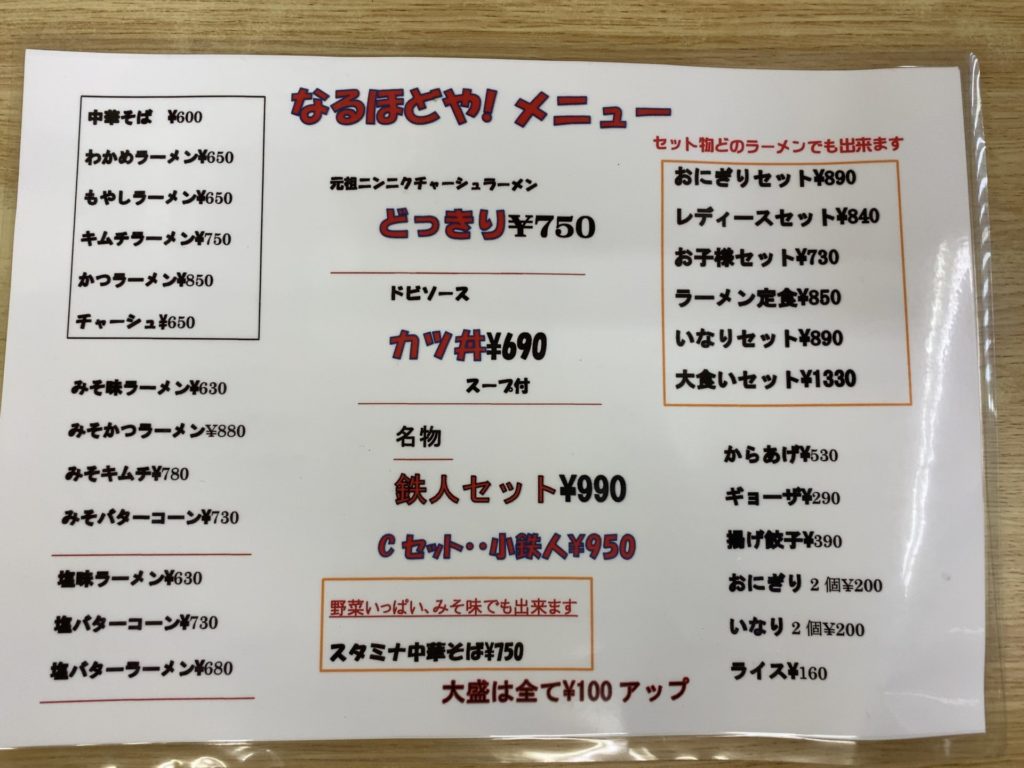 なるほどや! メニュー
中華そば ¥600
わかめラーメン¥650
もやしラーメン¥650
キムチラーメン¥750
かつラーメン¥850
チャーシュ¥650
みそ味ラーメン¥630
みそかつラーメン¥880
みそキムチ¥780
みそバターコーン¥730
塩味ラーメン¥630
塩バターコーン¥730
塩バターラーメン¥680
元祖ニンニクチャーシュラーメン
どっきり¥750
ドビソース
カツ丼¥690
スープ付
名物
鉄人セット¥990
Cセット‥小鉄人¥950
野菜いっぱい、みそ味でも出来ます
スタミナ中華そば¥750
大盛は全て¥100アップ
セット物どのラーメンでも出来ます
おにぎりセット¥890
レディースセット¥840
お子様セット¥730
ラーメン定食¥850
いなりセット¥890
大食いセット¥1330
からあげ¥530
ギョーザ¥290
揚げ餃子¥390
おにぎり2個¥200
いなり2個¥200
ライス¥160